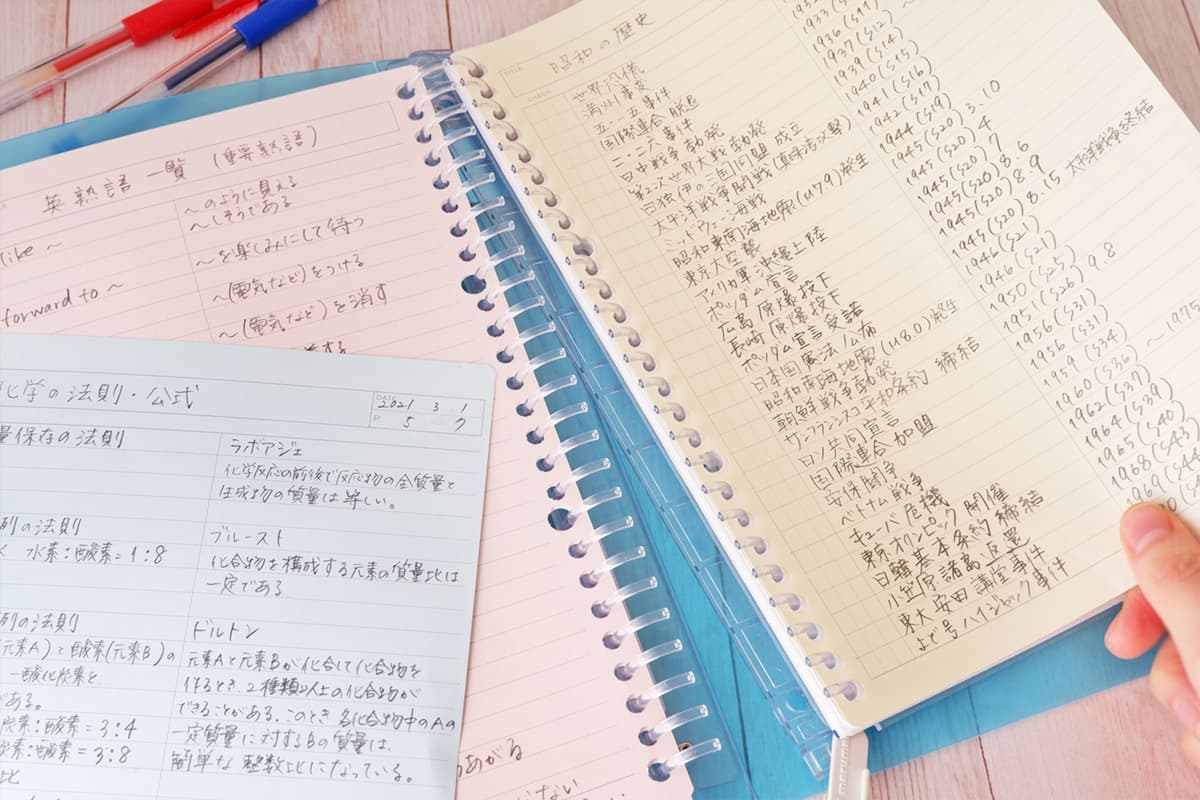 英熟語 一覧 (重要熟語)
like ~
~のように見える
~しそうである
forward to ~
~を楽しみにして待つ
~(電気など)をつける
~(電気など)を消す
化学の法則・公式
DATE 2021 3 1
P. 5 7
量保存の法則
ラボアジェ
化学反応の前後で反応物の全質量と
生成物の質量は等しい。
例の法則
プルースト
水素:酸素=1:8
化合物を構成する元素の質量比は
一定である
例の法則
ドルトン
(元素A)と酸素(元素B)の
元素Aと元素Bが化合して化合物を
一酸化炭素と
作るとき、2種類以上の化合物が
がある。
できることがある。このとき 各化合物中のAの
炭素:酸素=3:4
一定質量に対するBの質量は、
炭素:酸素=3:8
簡単な 整数比になっている。
比
あがる
TITLE 昭和の歴史
世界恐慌
満州事変
五・一五事件
国際連合 脱退
1933
二・二六事件
1936 (S11)
日中戦争 勃発
1937 (S12) ~
第2次世界大戦 勃発
1939 (S14)
日独伊の三国同盟 成立
1940 (S15)
太平洋戦争開戦 (真珠湾攻撃)
1941 (S16)
ミッドウェー海戦
(S17)
昭和東南海地震(M7.9)発生
1944 (S19)
東京大空襲
1945 (S20) 3.10
アメリカ軍 沖縄上陸
1945 (S20) 4
ポツダム宣言
1945 (S20) 7
広島 原爆投下
1945 (S20) 8.6
長崎 原爆投下
1945 (S20) 8.9
ポツダム宣言 受諾
1945 (S20) 8.15 太平洋戦争終結
日本国憲法公布
1946 (S21)
昭和南海地震(M8.0)発生
1946 (S21)
朝鮮戦争勃発
1950 (S25)
サンフランシスコ平和条約 締結
1951 (S26) 9.8
日ソ共同宣言
1956 (S31)
国際連合 加盟
1956 (S31)
安保闘争
1959 (S34)
ベトナム戦争
1960 (S36) ~ 1975
キューバ危機
1962 (S37)
東京オリンピック 開催
1964 (S39)
日韓基本条約 締結
1965 (S40)
小笠原諸島返還
1968 (S43)
東大安田講堂事件
1969 (S44
よど号ハイジャック事件